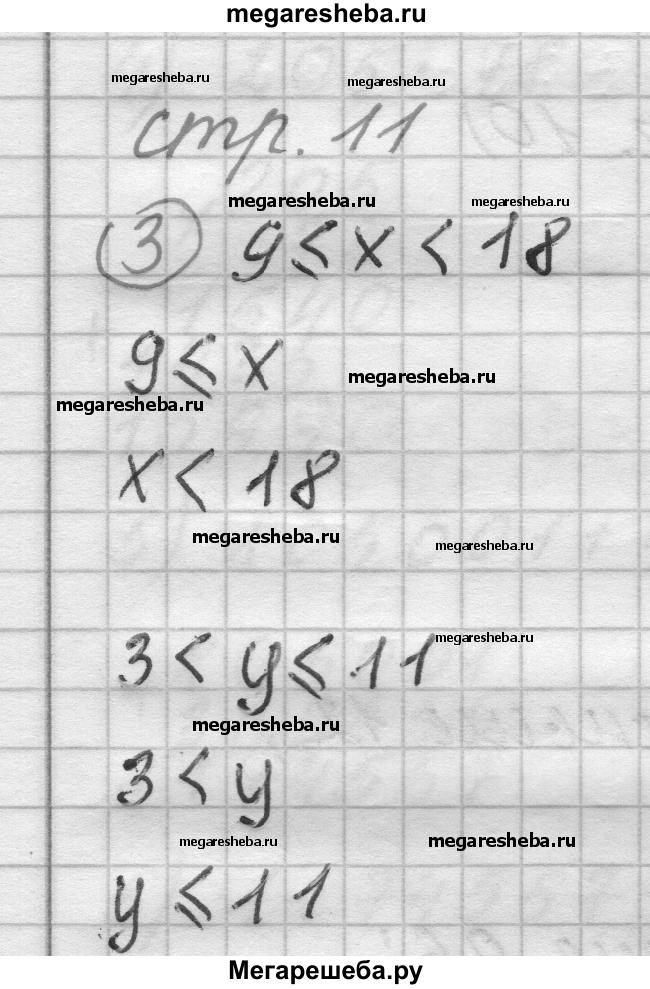 megaresheba.ru
megaresheba.ru megaresheba.ru
стр. 11
megaresheba.ru megaresheba.ru
3 9 ≤ x < 18
9 ≤ x
megaresheba.ru
megaresheba.ru
x < 18
megaresheba.ru
megaresheba.ru
3 < y ≤ 11
megaresheba.ru
megaresheba.ru
3 < y
megaresheba.ru megaresheba.ru
y ≤ 11
Мегарешеба.ру